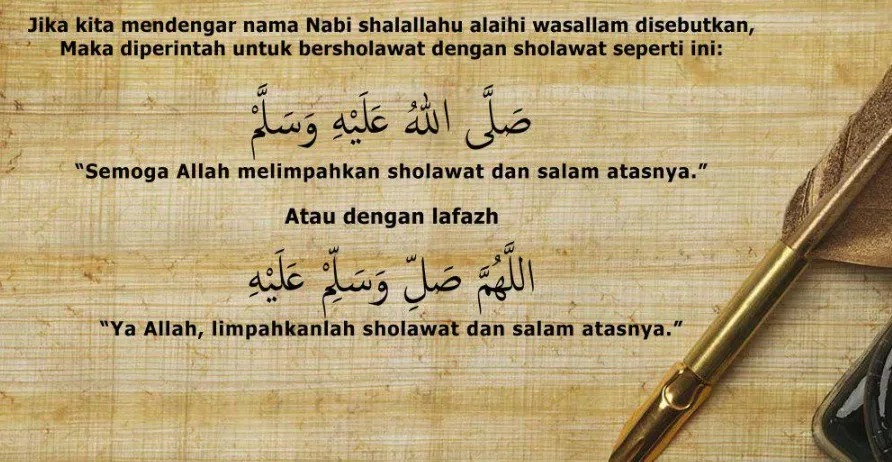 Jika kita mendengar nama Nabi shalallahu alaihi wasallam disebutkan,
Maka diperintah untuk bersholawat dengan sholawat seperti ini:
صَلَّى اللهُ عَلَيْهِ وَسَلَّمْ
“Semoga Allah melimpahkan sholawat dan salam atasnya.”
Atau dengan lafazh
اللَّهُمَّ صَلِّ وَسَلِّمْ عَلَيْهِ
“Ya Allah, limpahkanlah sholawat dan salam atasnya.”